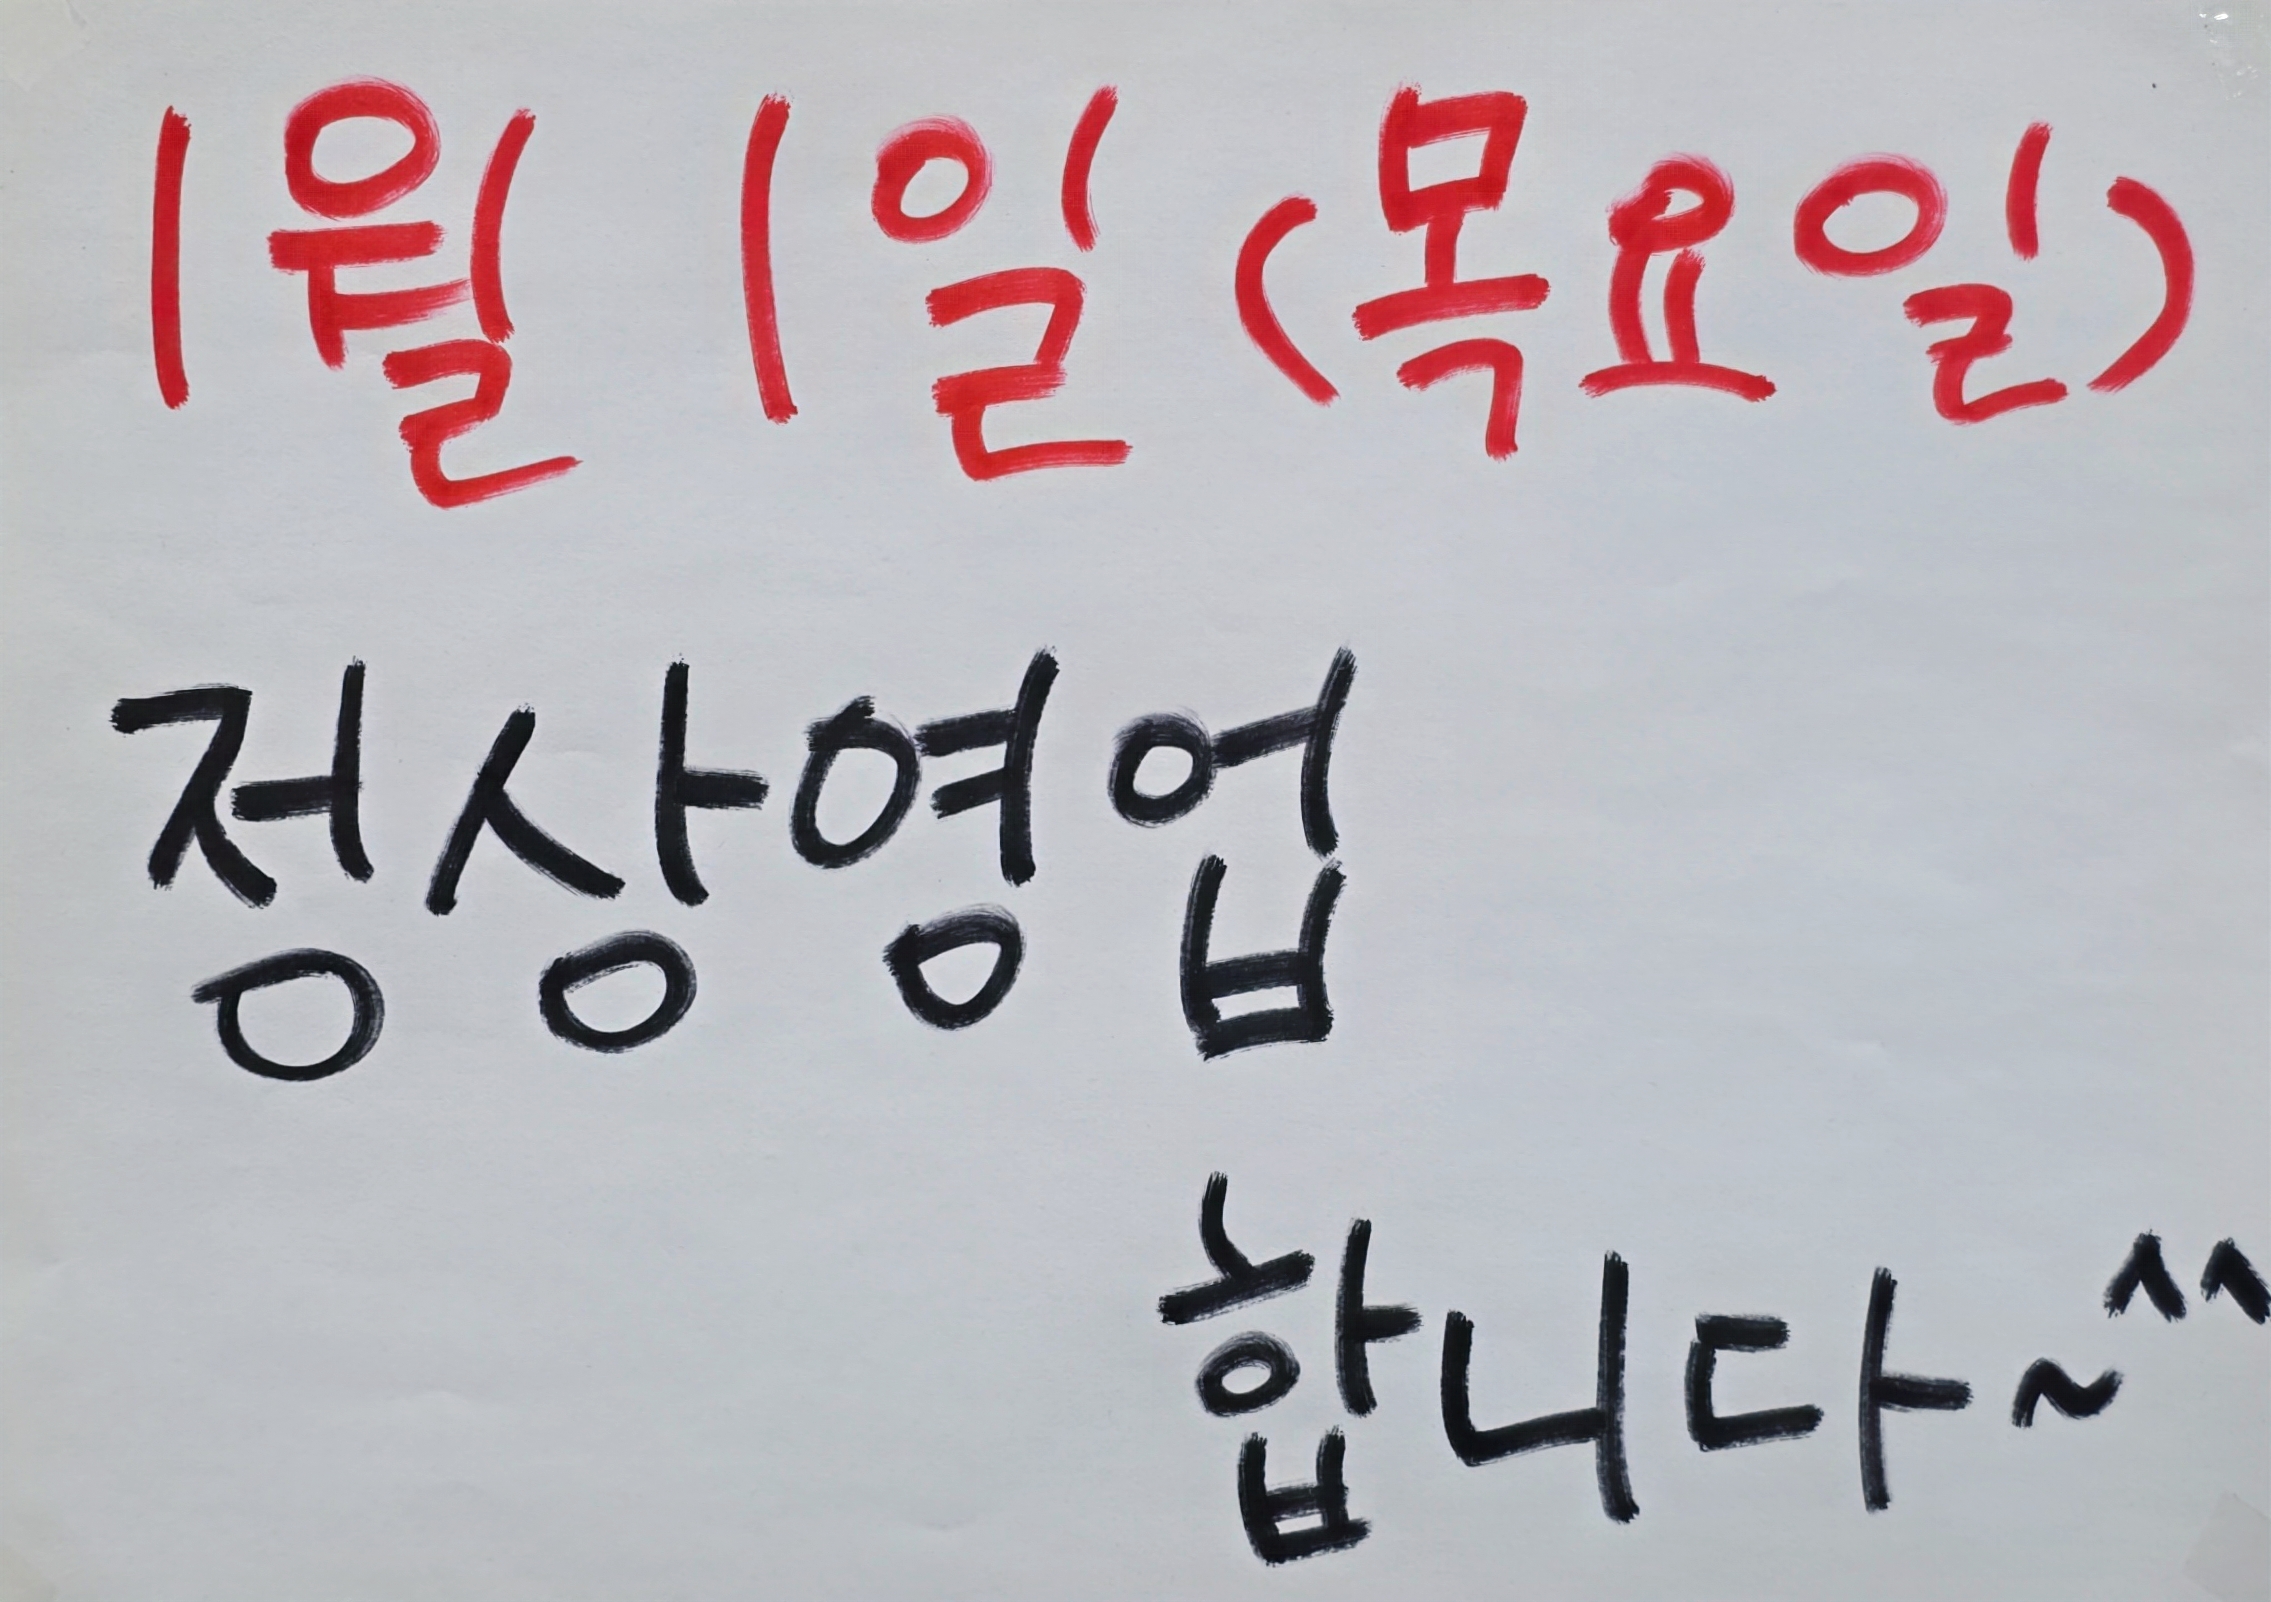 1월 1일 (목요일)
정상영업
합니다~^^